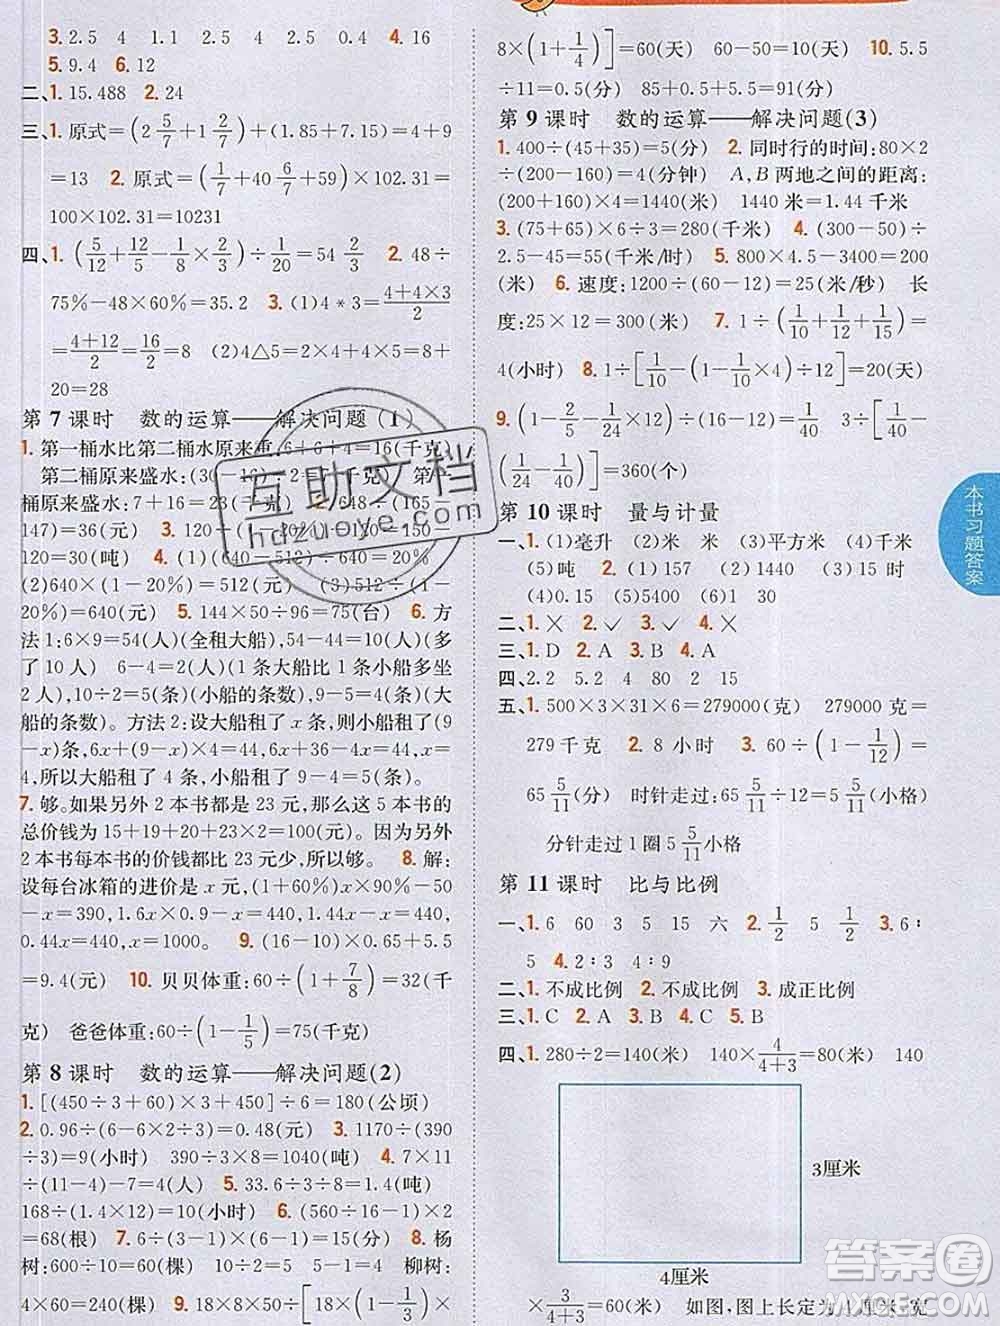 3. 2.5 4 1.1 2.5 2.5 0.4 4. 16
5. 9.4 6. 12
二、1. 15.488 2. 24
三、1. 原式=(2 5/7+1 2/7)+(1.85+7.15)=4+9
=13 2. 原式=(1/7+40 6/7+59)×102.31=
100×102.31=10231
四、1. (5/12+12/5-1/8×2/3)÷1/20=54 2/3 2. 48÷
75%-48×60%=35.2 3. (1)4*3=(4+4×3)/2
=(4+12)/2=16/2=8 (2)4△5=2×4+4×5=8+
20=28
第 7 课时 数的运算——解决问题(1)
1. 第一桶水比第二桶水原来重:6+6+4=16(千克)
第二桶原来盛水:(30-16)÷2=7(千克) 第一
桶原来盛水:7+16=23(千克) 2. 648÷(165-
147)=36(台) 3. 120÷0.8=150(吨) 150-
120=30(吨) 4. (1)(640-512)÷640=20%
(2)512÷(1-20%)=640(元) 640÷(1-
20%)=640(元) 5. 144×50÷96=75(台) 6. 方
法 1:6×9=54(人)(全租大船),54-44=10(人)(多
了 10 人) 6-4=2(人)(1 条大船比 1 条小船多坐
2 人),10÷2=5(条)(小船的条数),9-5=4(条)(大
船的条数)。方法 2:设大船租了 x 条,则小船租了(9
-x)条,6x+4(9-x)=44,6x+36-4x=44,x=
4,所以大船租了 4 条,小船租了 5 条。
7. 够。如果另外 2 本书都是 23 元,那么这 5 本书的
总价钱为 15+19+20+23×2=100(元)。因为另外
2 本书每本书的价钱都比 23 元少,所以够。 8. 解:
设每台冰箱的进价是 x 元,(1+60%)x×90%-50
-x=390,1.6x×0.9-50-x=390,1.44x-x=440,
0.44x=440,x=1000。 9. (16-10)×0.65+5.5
=9.4(元) 10. 贝贝体重:60÷(1+7/8)=32(千
克) 爸爸体重:60÷(1-1/5)=75(千克)
第 8 课时 数的运算——解决问题(2)
1. [(450÷3+60)×3+450]÷6=180(公顷)
2. 0.96÷(6-6×2÷3)=0.48(元) 3. 1170÷(390
÷3)=9(小时) 390÷3×8=1040(吨) 4. 7×11
÷(11-4)=11(人) 5. 120×6÷(6-2)=180(米)
168÷(1.4×12)=10(小时) 6. (560÷16-1)×2
=68(根) 7. 6÷(3-1)×(6-1)=15(分) 8. 杨
树:600÷10=60(棵) 柳树:(60-1)×4=236(棵)
4×60=240(棵) 9. 18×8×50÷[18×(1+1/4)×
8×(1+1/4)]=60(天) 60-50=10(天) 10. 5.5
÷11=0.5(分) 85+0.5+5.5=91(分)
第 9 课时 数的运算——解决问题(3)
1. 400÷(45+35)=5(分) 2. 同时行的时间:80×2
÷(200-160)=4(分钟) A,B 两地之间的距离:
(200+160)×4=1440(米) 1440 米=1.44 千米
3. (75+65)×6÷3=280(千米) 4. (300-50)÷
2.5-45=55(千米/时) 5. 800×4.5-3400=200
(米) 6. 速度:1200÷(60-12)=25(米/秒) 长
度:25×12=300(米) 7. 1÷(1/10+1/10+1/15)=
4(小时) 8. 1÷[1/10-(1/10-1/12)÷1/3]=20(天)
9. (1-1/24×12)÷(16-12)=1/8 3÷[1/40-
(1/24-1/40)]=360(个)
第 10 课时 量与计量
一、1. (1)毫升 (2)米 米 (3)平方米 (4)千米
(5)吨 2. (1)157 (2)1440 (3)15时
(4)0.15 (5)5 (6)1 30
二、1. ✕ 2. ✓ 3. ✓ 4. ✕
三、1. D 2. A 3. B 4. A
四、2.2 5.2 4 80 2 15
五、1. 500×3×31×6=279000(克) 279000 克=
279 千克 2. 8 小时 3. 60÷(1-1/12)=
65 5/11(分) 时针走过:65 5/11÷12=5 5/11(小格)
分针走过 1 圈 5 5/11小格
第 11 课时 比与比例
一、1. 6 60 3 5 15 六 2. 1/2 5 1/2 3. 6∶
5 4. 2∶3 4∶9
二、1. 不成比例 2. 不成比例 3. 成正比例
三、1. C 2. A 3. B 4. C 5. B
四、1. 280÷2=140(米) 140×4/(4+3)=80(米) 140
3厘米
4厘米
×3/(4+3)=60(米) 如图,图上长定为 4 厘米,宽
本书习题答案
互助文档
hdzuoye.com
答案圈